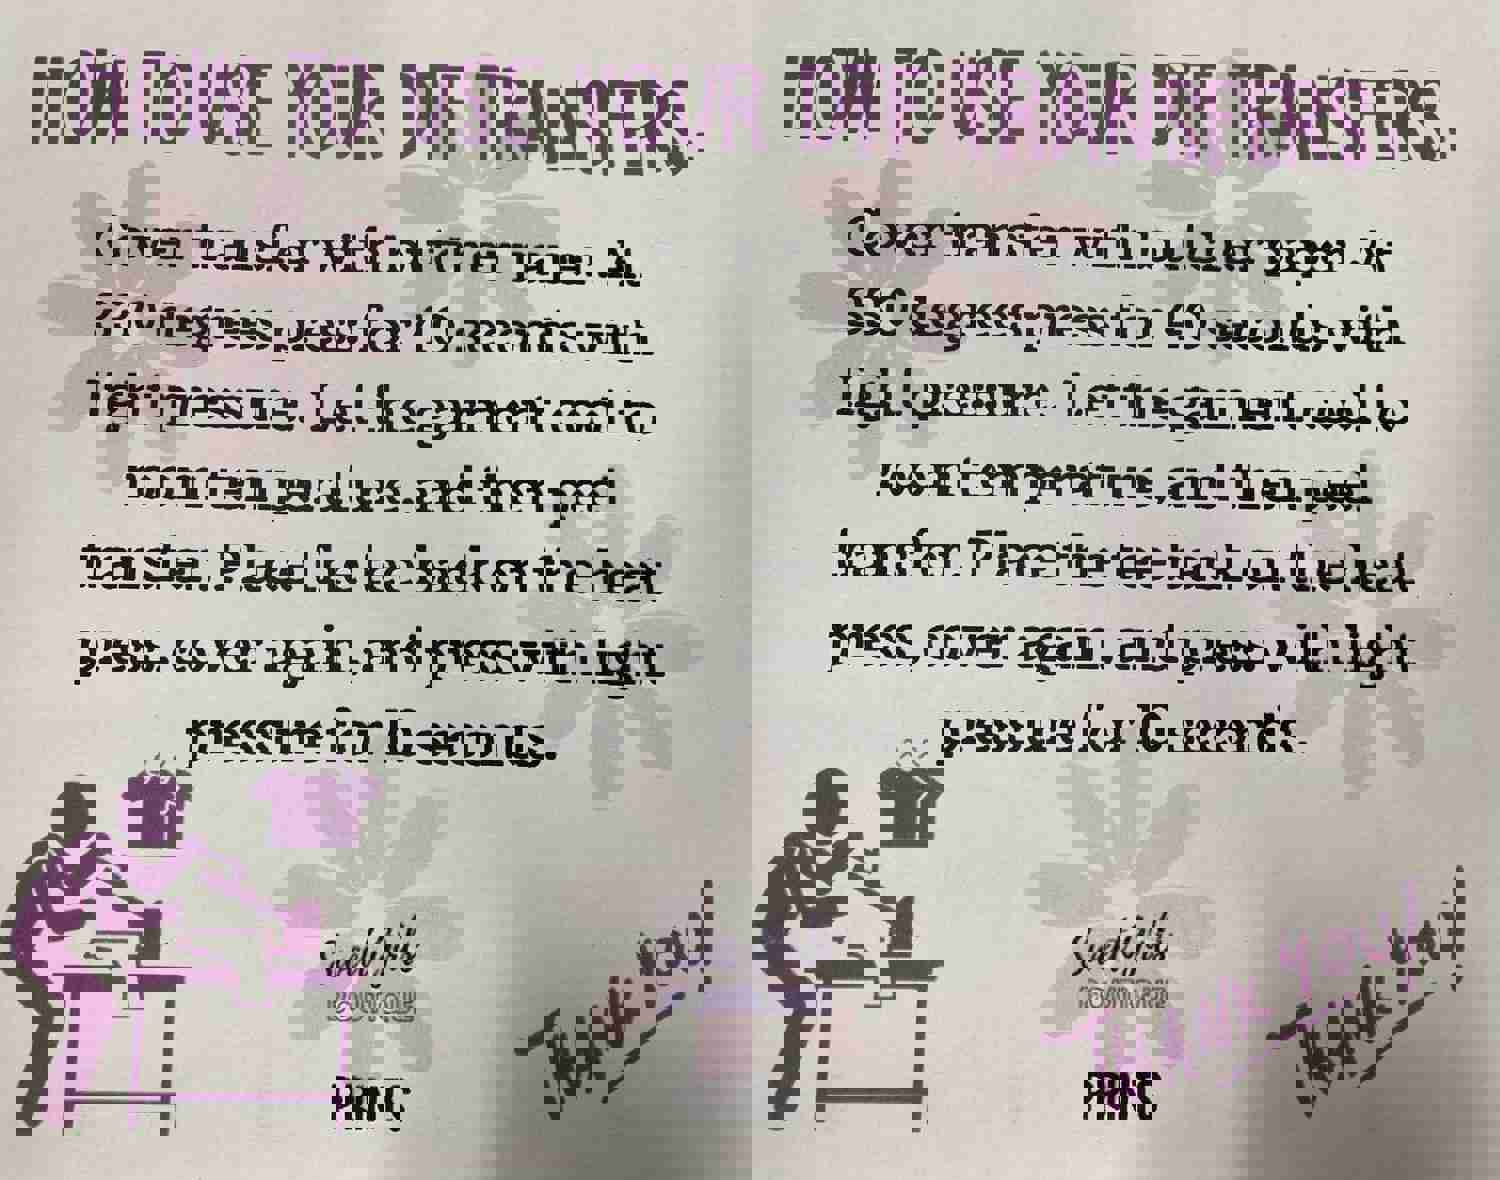 HOW TO USE YOUR DTF TRANSFERS:
Cover transfer with butcher paper. At
degrees press for seconds with
light pressure. Let the garment cool to
room temperature, and then peel
transfer. Place the tee back on the heat
press, cover again, and press with light
pressure for 10 seconds.
BOUTIQUE
PRINTS
THANK YOU!
HOW TO USE YOUR DTF TRANSFERS:
Cover transfer with butcher paper. At
degrees press for 40 seconds with
light pressure. Let the garment cool to
room temperature, and then peel
transfer. Place the tee back on the heat
press, cover again, and press with light
pressure for 10 seconds.
BOUTIQUE
PRINTS
THANK YOU!